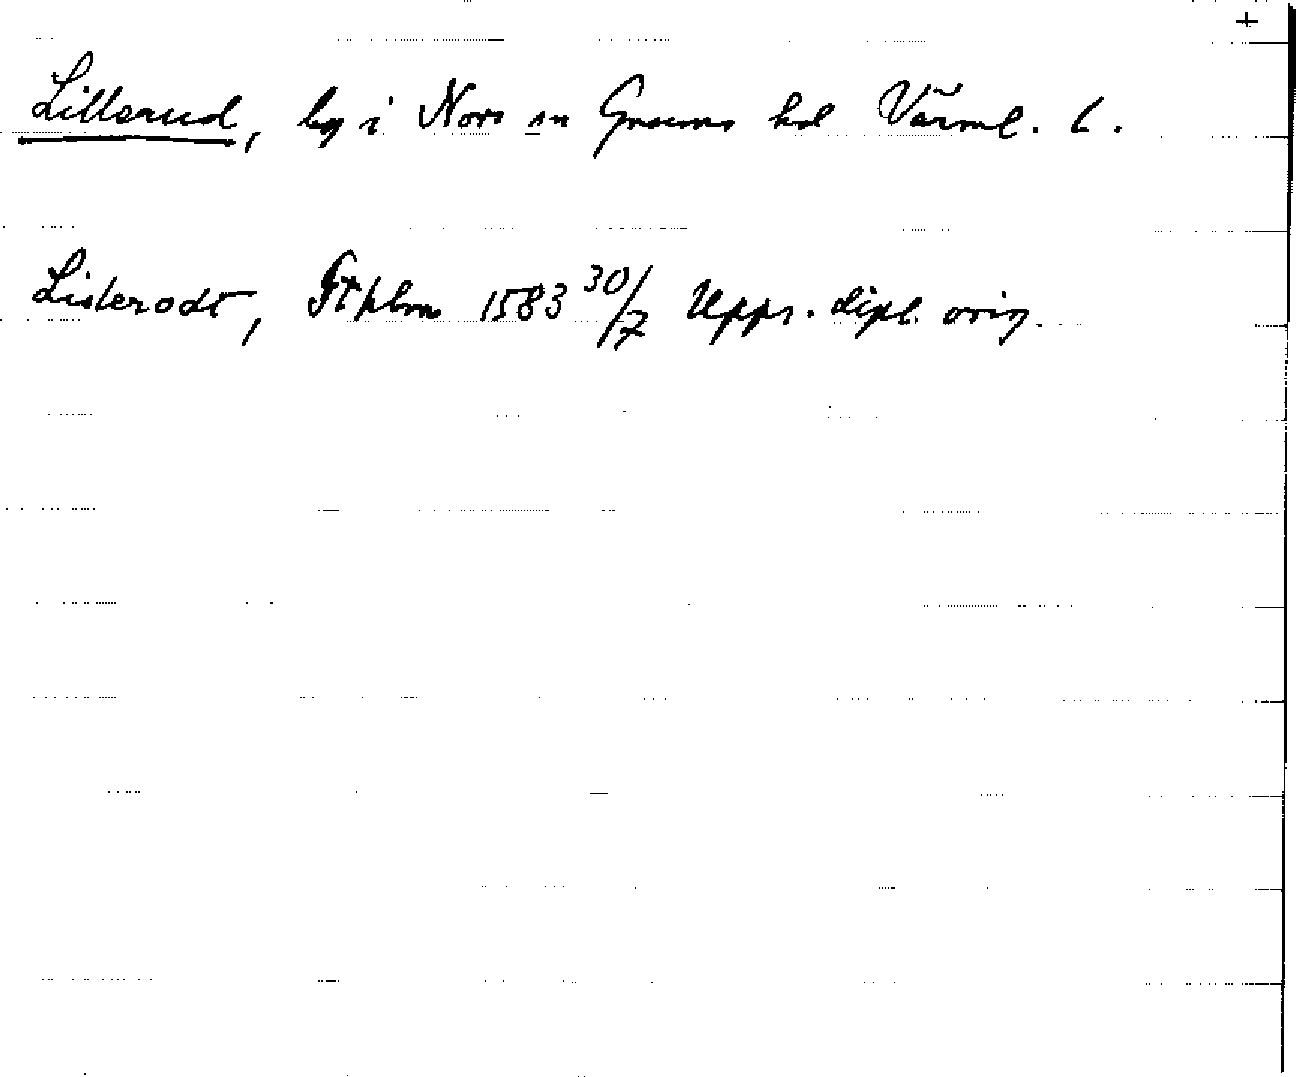 +
Lillerud, by i Nors sn Grums hd Värml. l.
Listerodt, Sthlm 1583 30/7 Upps. dipl. orig.